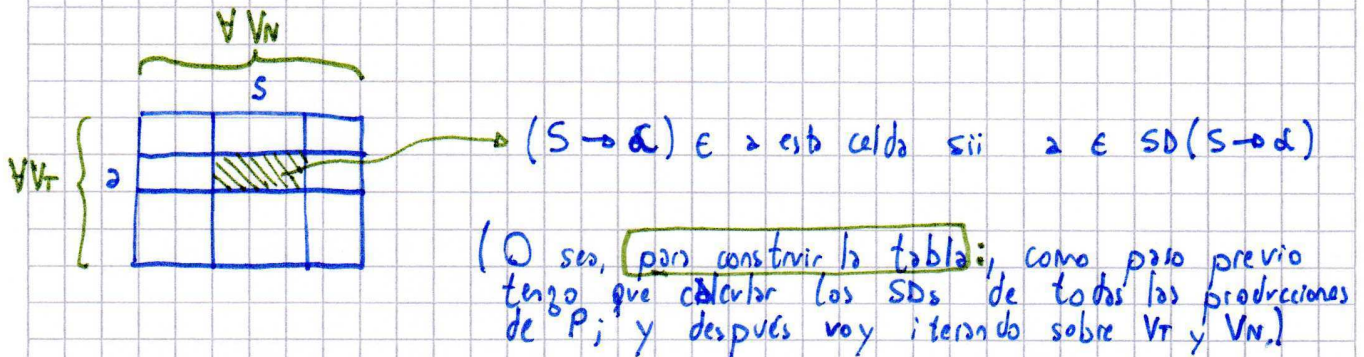 ∀ VN
S
∀VT
a
(S → α) ∈ a esta celda sii a ∈ SD(S → α)
(O sea, para construir la tabla:, como paso previo
tengo que calcular los SDs de todas las producciones
de P; y después voy iterando sobre VT y VN.)